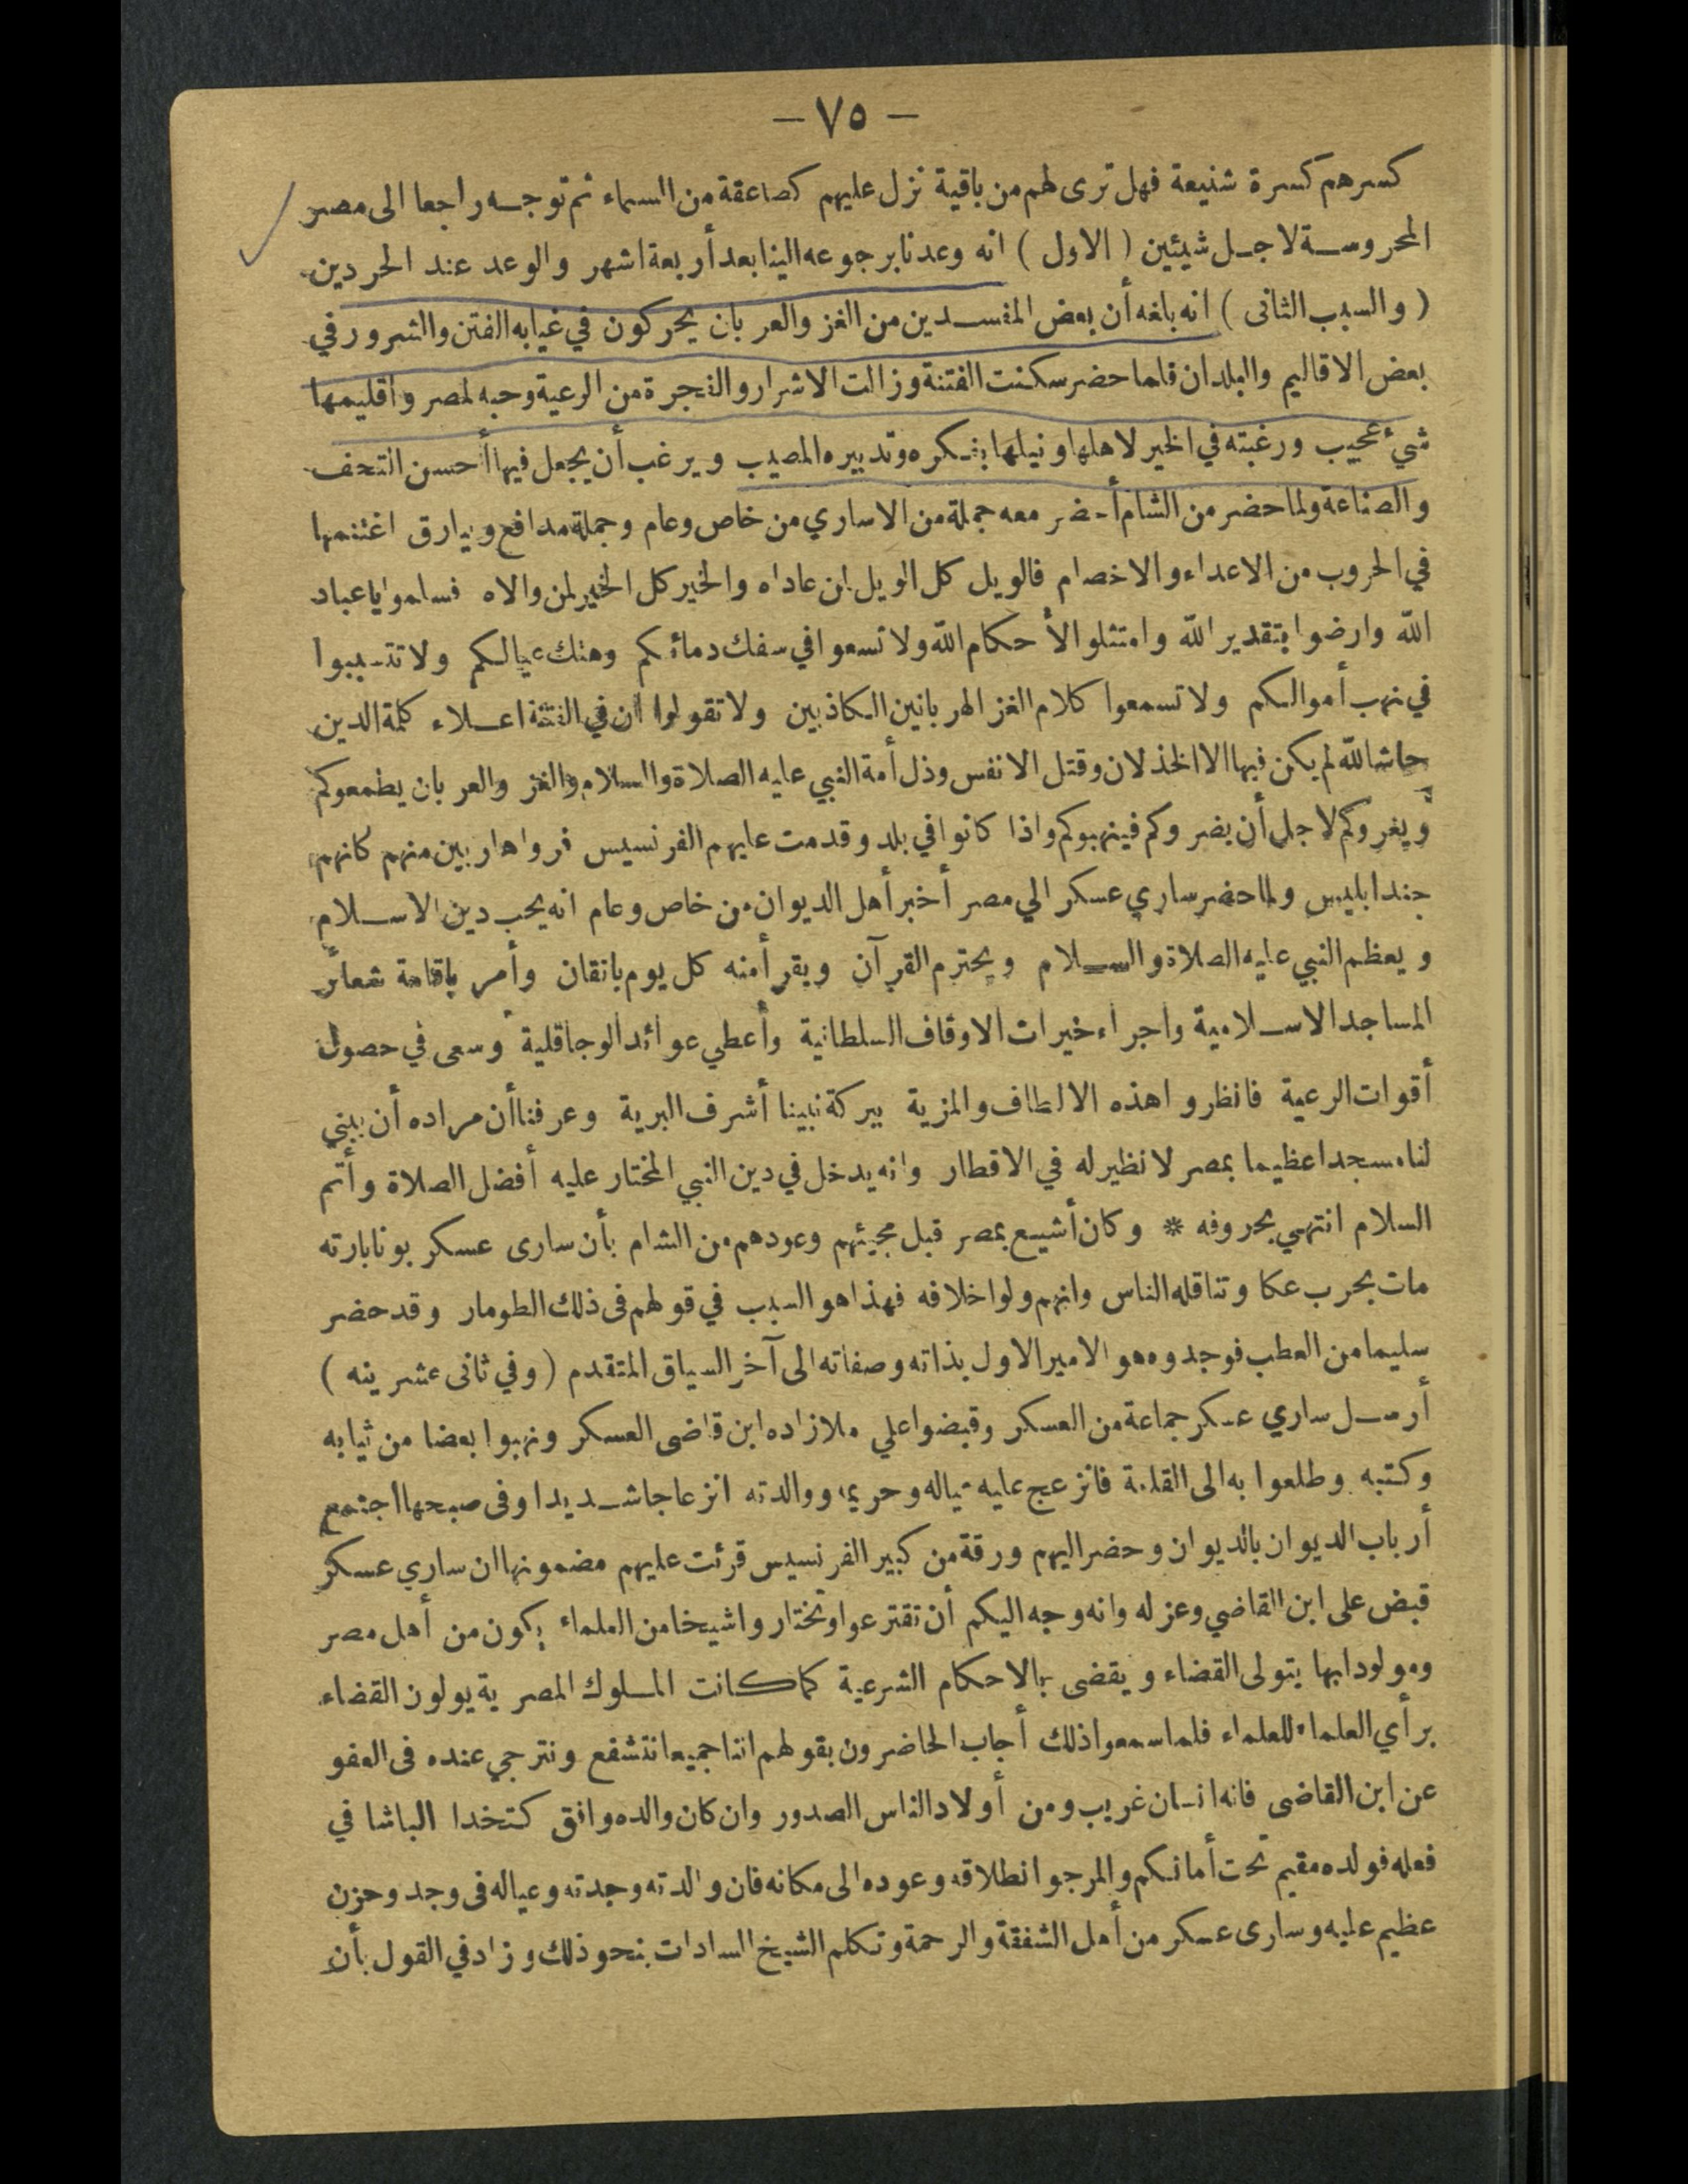 — ٧٥ —
كسرهم كسرة شنيعة فهل ترى لهم من باقية نزل عليهم كصاعقة من السماء ثم توجه راجعا الى مصر
المحروسة لاجل شيئين ( الاول ) انه وعدنا برجوعه الينا بعد أربعة اشهر والوعد عند الحر دين
( والسبب الثانى ) انه بلغه أن بعض المفسدين من الغز والعربان يحركون في غيابه الفتن والشرور في
بعض الاقاليم والبلدان فلما حضر سكنت الفتنة وزالت الاشرار والفجرة من الرعية وحبه لمصر واقليمها
شيء عجيب ورغبته في الخير لاهلها ونيلها بفكره وتدبيره المصيب ويرغب أن يجعل فيها أحسن التحف
والصناعة ولما حضر من الشام أحضر معه جملة من الاساري من خاص وعام وجملة مدافع وبيارق اغتنمها
في الحروب من الاعداء والاخصام فالويل كل الويل لمن عاداه والخير كل الخير لمن والاه فسلموا يا عباد
الله وارضوا بتقدير الله وامتثلوا لأحكام الله ولا تسعوا في سفك دمائكم وهتك عيالكم ولا تتسببوا
في نهب أموالكم ولا تسمعوا كلام الغز الهربانين الكاذبين ولا تقولوا ان في الفتنة اعلاء كلمة الدين
حاشا لله لم يكن فيها الا الخذلان وقتل الانفس وذل أمة النبي عليه الصلاة والسلام والغز والعربان يطمعوكم
ويغروكم لاجل أن يضروكم فينهبوكم واذا كانوا في بلد وقدمت عليهم الفرنسيس فروا هاربين منهم كانهم
جند ابليس ولما حضر ساري عسكر الي مصر أخبر أهل الديوان من خاص وعام انه يحب دين الاسلام
ويعظم النبي عليه الصلاة والسلام ويحترم القرآن ويقرأ منه كل يوم باتقان وأمر باقامة شعائر
المساجد الاسلامية واجراء خيرات الاوقاف السلطانية وأعطي عوائد الوجاقلية وسعى في حصول
أقوات الرعية فانظروا هذه الالطاف والمزية ببركة نبينا أشرف البرية وعرفنا أن مراده أن يبني
لنا مسجدا عظيما بمصر لا نظير له في الاقطار وانه يدخل في دين النبي المختار عليه أفضل الصلاة وأتم
السلام انتهي بحروفه * وكان أشيع بمصر قبل مجيئهم وعودهم من الشام بأن سارى عسكر بونابارته
مات بحرب عكا وتناقله الناس وانهم ولوا خلافه فهذا هو السبب في قولهم فى ذلك الطومار وقد حضر
سليما من العطب فوجدوه هو الامير الاول بذاته وصفاته الى آخر السياق المتقدم ( وفي ثانى عشرينه )
أرسل ساري عسكر جماعة من العسكر وقبضوا علي ملا زاده ابن قاضى العسكر ونهبوا بعضا من ثيابه
وكتبه وطلعوا به الى القلعة فانزعج عليه عياله وحريمه ووالدته انزعاجا شديدا وفى صبحها اجتمع
أرباب الديوان بالديوان وحضر اليهم ورقة من كبير الفرنسيس قرئت عليهم مضمونها ان ساري عسكر
قبض على ابن القاضي وعزله وانه وجه اليكم أن تقترعوا وتختاروا شيخا من العلماء يكون من أهل مصر
ومولودا بها يتولى القضاء ويقضى بالاحكام الشرعية كما كانت الملوك المصرية يولون القضاء
برأي العلماء للعلماء فلما سمعوا ذلك أجاب الحاضرون بقولهم اننا جميعا نتشفع ونترجي عنده فى العفو
عن ابن القاضى فانه انسان غريب ومن أولاد الناس الصدور وان كان والده وافق كتخدا الباشا في
فعله فولده مقيم تحت أمانكم والمرجو انطلاقه وعوده الى مكانه فان والدته وجدته وعياله فى وجد وحزن
عظيم عليه وسارى عسكر من أهل الشفقة والرحمة وتكلم الشيخ السادات بنحو ذلك وزاد في القول بأن